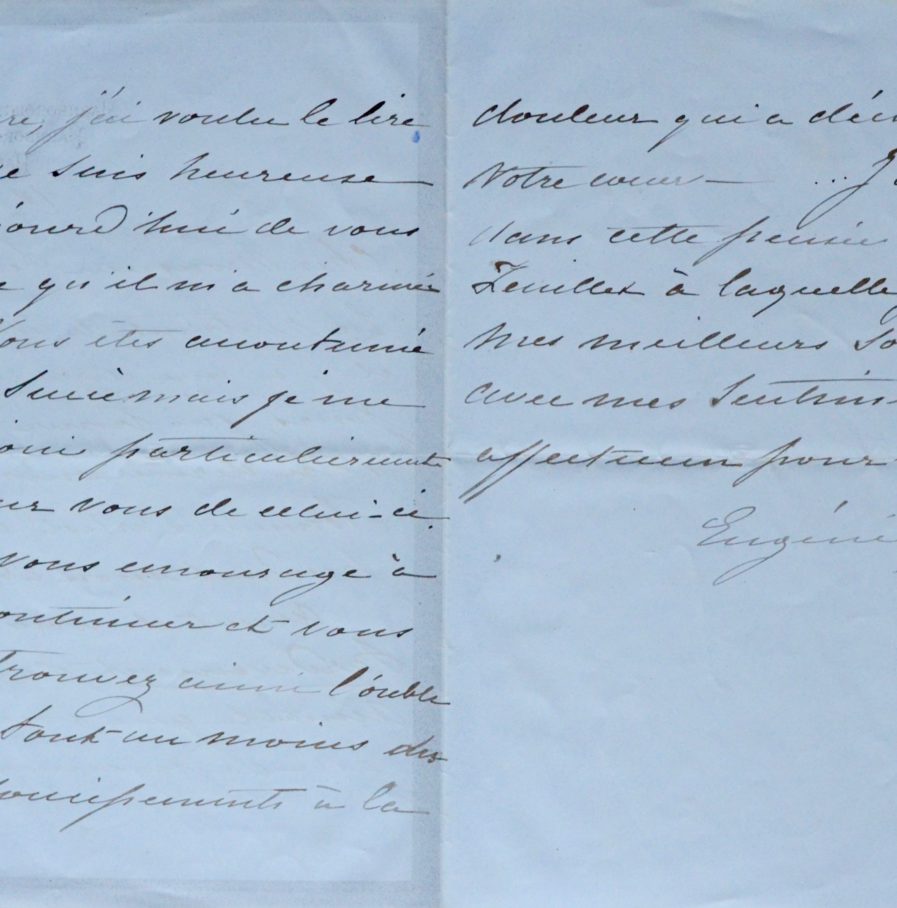 re, j'ai voulu le lire
je suis heureuse
jourd'hui de vous
qu'il m'a charmée
Vous êtes accoutumé
succès mais je me
particulièrement
ur vous de celui-ci.
vous encourage à
ontinuer et vous
trouvez ainsi l'oubli
tout au moins des
à la
douleur qui a déc
Votre cœur — ... J
dans cette pensée
Feuillet à laquelle
mes meilleurs so
avec mes sentim
affectueux pour
Eugénie